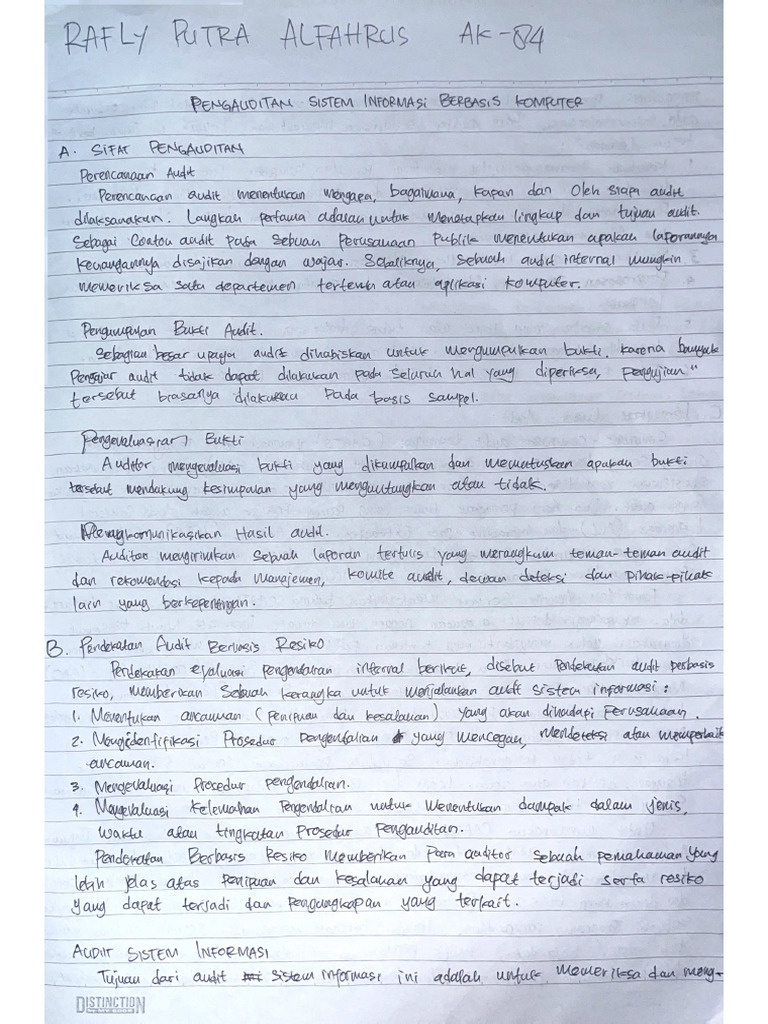 RAFLY PUTRA ALFAHRUS AK-84
PENGAUDITAN SISTEM INFORMASI BERBASIS KOMPUTER
A. SIFAT PENGAUDITAN
Perencanaan Audit
Perencanaan audit menentukan mengapa, bagaimana, kapan dan oleh siapa audit
dilaksanakan. Langkah pertama adalah untuk menetapkan lingkup dan tujuan audit.
Sebagai Contoh audit pada sebuah perusahaan publik menentukan apakah laporannya
keuangannya disajikan dengan wajar. Sebaliknya, sebuah audit internal mungkin
memeriksa satu departemen tertentu atau aplikasi komputer.
Pengumpulan Bukti Audit.
Sebagian besar upaya audit dihabiskan untuk mengumpulkan bukti, karena banyak
Pengujar audit tidak dapat dilakukan pada seluruh hal yang diperiksa, pengujian"
tersebut biasanya dilakukan pada basis sampel.
Pengevaluasian Bukti
Auditor mengevaluasi bukti yang dikumpulkan dan memutuskan apakah bukti
tersebut mendukung kesimpulan yang menguntungkan atau tidak.
Mengkomunikasikan Hasil audit.
Auditor mengirimkan sebuah laporan tertulis yang merangkum teman-teman audit
dan rekomendasi kepada manajemen, komite audit, dewan deteksi dan pihak-pihak
lain yang berkepentingan.
B. Pendekatan Audit Berbasis Resiko
Pendekatan evaluasi pengendalian internal berikut, disebut pendekatan audit berbasis
resiko, memberikan sebuah kerangka untuk menjalankan audit sistem informasi :
1. Menentukan ancaman (penipuan dan kesalahan) yang akan dihadapi perusahaan.
2. Mengidentifikasi Prosedur pengendalian yang mencegah, mendeteksi atau memperbaik
ancaman.
3. Mengevaluasi prosedur pengendalian.
4. Mengevaluasi kelemahan pengendalian untuk menentukan dampak dalam jenis,
waktu atau tingkatan Prosedur Pengauditan.
Pendekatan Berbasis Resiko memberikan para auditor sebuah pemahaman yang
lebih jelas atas penipuan dan kesalahan yang dapat terjadi serta resiko
yang dapat terjadi dan pengungkapan yang terkait.
AUDIIT SISTEM INFORMASI
Tujuan dari audit sistem informasi ini adalah untuk memeriksa dan meng-
DISTINCTION